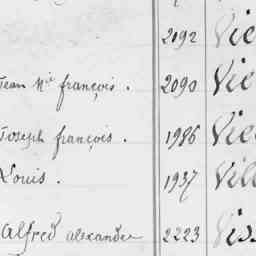 2192 Vie
Jean Nis françois. 2090 Vie
Joseph françois. 1986 Vie
Louis. 1937 Vill
Alfred alexandre 2223 Viss